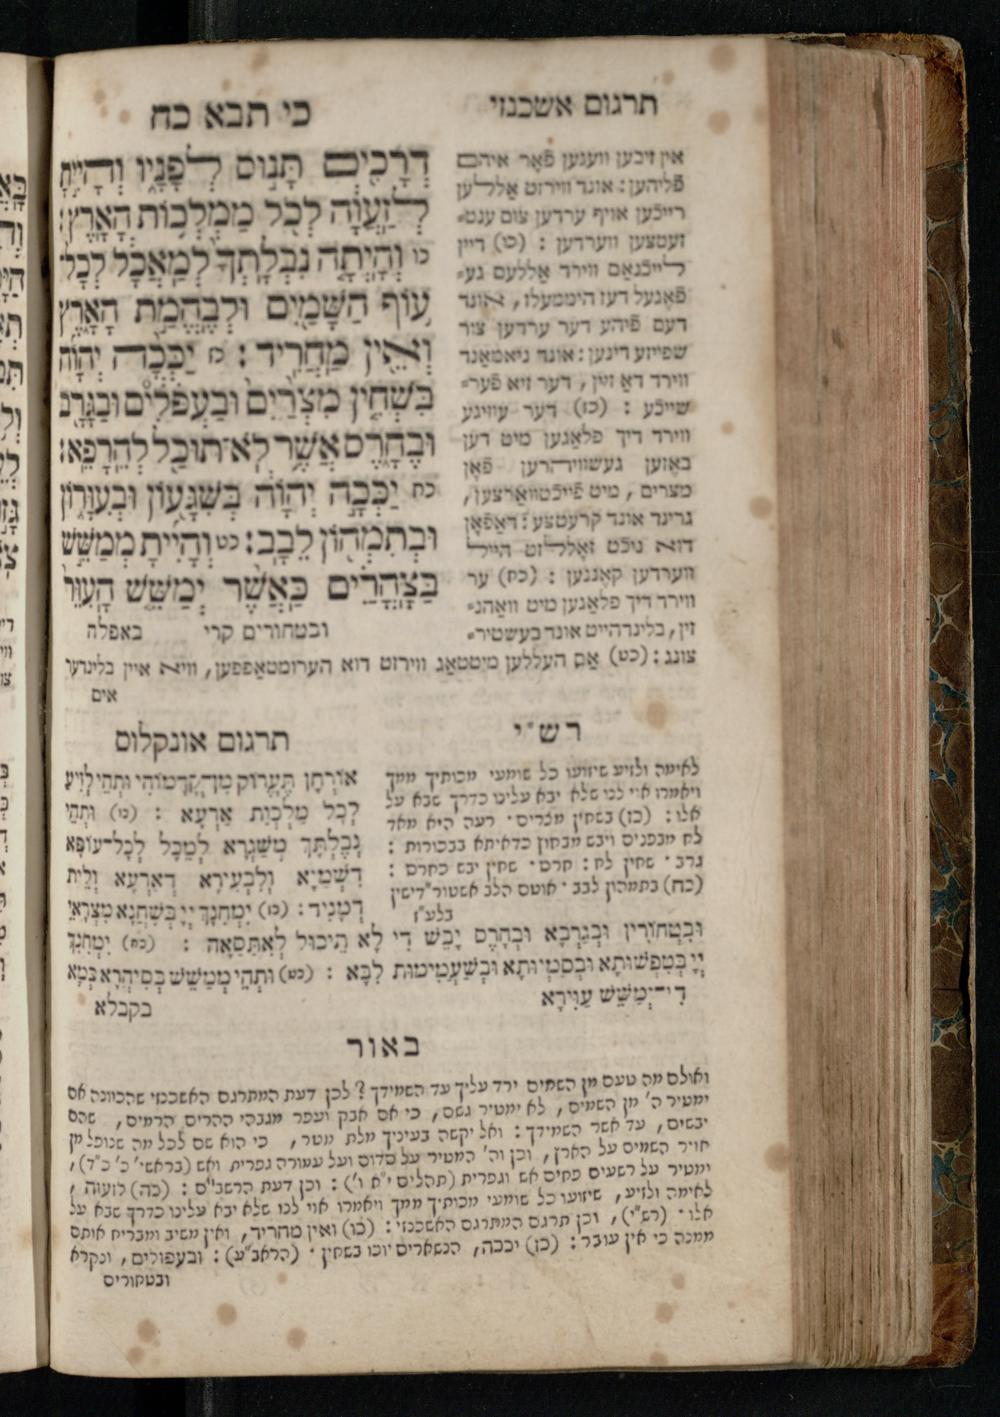 כי תבא כח
דְּרָכִ֖ים תָּנ֣וּס לְפָנָ֑יו וְהָיִ֣יתָ
לְזַֽעֲוָ֔ה לְכֹ֖ל מַמְלְכ֥וֹת הָאָֽרֶץ׃
כו וְהָיְתָ֤ה נִבְלָֽתְךָ֙ לְמַֽאֲכָ֔ל לְכָל־
ע֥וֹף הַשָּׁמַ֖יִם וּלְבֶֽהֱמַ֣ת הָאָ֑רֶץ
וְאֵ֖ין מַֽחֲרִֽיד׃ כז יַכְּכָ֨ה יְהוָֹ֜ה
בִּשְׁחִ֤ין מִצְרַ֨יִם֙ וּבַעְפֹלִ֔ים וּבַגָּרָ֖ב
וּבֶחָ֑רֶס אֲשֶׁ֥ר לֹֽא־תוּכַ֖ל לְהֵֽרָפֵֽא׃
כח יַכְּכָ֣ה יְהוָֹ֔ה בְּשִׁגָּע֖וֹן וּבְעִוָּר֑וֹן
וּבְתִמְה֖וֹן לֵבָֽב׃ כט וְהָיִ֜יתָ מְמַשֵּׁ֣שׁ
בַּֽצָּהֳרַ֗יִם כַּֽאֲשֶׁ֨ר יְמַשֵּׁ֤שׁ הָֽעִוֵּר֙
ובטחורים קרי
באפלה
תרגום אשכנזי
אין זיבען וועגען פֿאָר איהם
פֿליהען: אונד ווירזט אַללען
רייכֿען אויף ערדען צום ענט־
זעטצען ווערדען : (כו) דיין
לייכֿנאַם ווירד אַללעם גע־
פֿאָגעל דעז היממעלז, אונד
דעם פֿיהע דער ערדען צור
שפייזע דינען: אונד ניאמאַנד
ווירד דאַ זיין, דער זיא פֿער־
שייכֿע : (כז) דער עוויגע
ווירד דיך פלאַגען מיט דען
באָזען געשווירהרען פֿאָן
מצרים, מיט פֿייכֿטוואַרצען,
גרינד אונד קרעטצע: דאַפֿאָן
דוא ניכֿט זאָללזט הייל
ווערדען קאָננען : (כח) ער
ווירד דיך פלאַגען מיט וואַהנ־
זין, בלינדהייט אונד בעשטיר־
צונג: (כט) אַם העללען מיטטאַג ווירזט דוא הערומטאַפפען, וויא איין בלינדער
אים
רש״י
לאימה ולזיע שיזועו כל שומעי מכותיך ממך
ויאמרו אוי לנו שלא יבא עלינו כדרך שבא על
אלו: (כז) בשחין מצרים. רעה היא מאד
לח מבפנים ויבש מבחוץ כדאיתא בבכורות :
גרב. שחין לח: חרס. שחין יבש כחרס :
(כח) בתמהון לבב. אוטם הלב אשטור״דישין
בלע״ז
תרגום אונקלוס
אוֹרְחָן תֵּעֲרוֹק מִן־קֳדָמוֹהִי וּתְהֵי לְזִיעַ
לְכֹל מַלְכְוַת אַרְעָא : (כו) וּתְהֵי
נְבֶלְתָּךְ מְשַׁגְּרָא לְמֵכַל לְכָל־עוֹפָא
דִשְׁמַיָּא וְלִבְעִירָא דְאַרְעָא וְלֵית
דְּמֵנִיד: (כז) יִמְחִנָּךְ יְיָ בְּשִׁחֲנָא מִצְרָאֵי
וּבִטְחוֹרִין וּבְגַרְבָא וּבְחָרֶס יָבֵשׁ דִּי לָא תִיכּוֹל לְאִתַּסָאָה : (כח) יִמְחִנָּךְ
יְיָ בְּטִפְשׁוּתָא וּבְסַמְיוּתָא וּבְשַׁעֲמִימוּת לִבָּא : (כט) וּתְהֵי מְמַשֵּׁשׁ בְּסִיהֲרָא כְּמָא
דִּי־יְמַשֵּׁשׁ עֲוִירָא
בקבלא
באור
ואולם מה טעם מן השמים ירד עליך עד השמידך? לכן דעת המתרגם האשכנזי שהכוונה אם
ימטיר ה' מן השמים, לא ימטיר גשם, כי אם אבק ועפר מגבהי ההרים הרמים, שהם
יבשים, עד אשר השמידך: ואל יקשה בעיניך מלת מטר, כי הוא שם לכל מה שנופל מן
אויר השמים על הארץ, וכן וה' המטיר על סדום ועל עמורה גפרית ואש (בראשי' כ' כ״ד),
ימטיר על רשעים פחים אש וגפרית (תהלים י״א ו'): וכן דעת הרשב״ם : (כה) לזעוה,
לאימה ולזיע, שיזועו כל שומעי מכותיך ממך ויאמרו אוי לנו שלא יבא עלינו כדרך שבא על
אלו. (רש״י), וכן תרגם המתרגם האשכנזי: (כו) ואין מחריד, ואין משיב ומבריח אותם
ממנה כי אין עובר: (כז) יככה, הנשארים יוכו בשחין. (הראב״ע): ובעפולים, ונקרא
ובטחורים